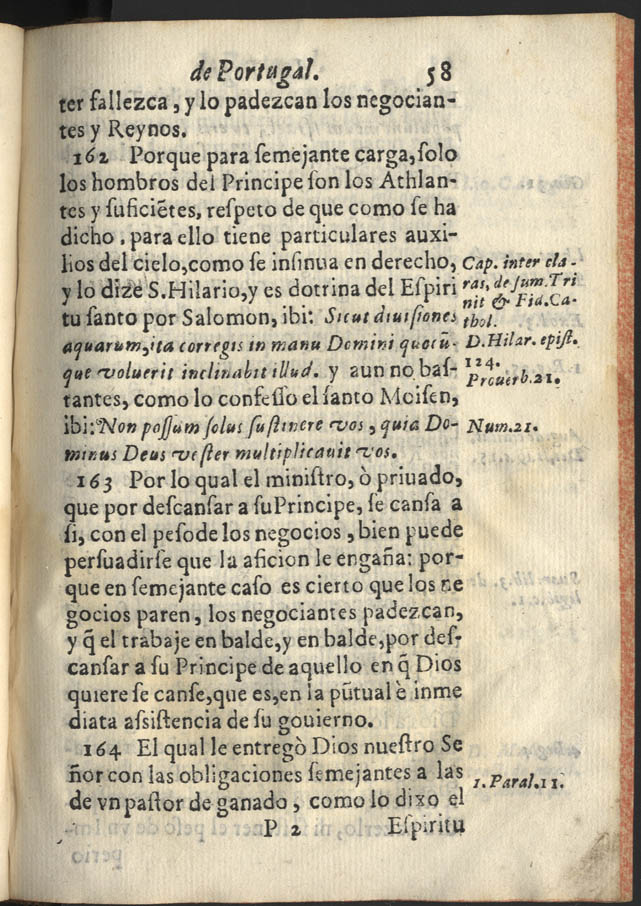 de Portugal. 58
ter fallezca, y lo padezcan los negocian-
tes y Reynos.
162 Porque para ſemejante carga, ſolo
los hombros del Principe ſon los Athlan-
tes y ſuficiẽtes, reſpeto de que como ſe ha
dicho, para ello tiene particulares auxi-
lios del cielo, como ſe inſinua en derecho,
y lo dize S. Hilario, y es dotrina del Eſpiri
tu ſanto por Salomon, ibi: Sicut diuiſiones
aquarum, ita cor regis in manu Domini quocũ-
que voluerit inclinabit illud. y aun no baſ-
tantes, como lo confeſſo el ſanto Moiſen,
ibi: Non poſſum ſolus ſuſtinere vos, quia Do-
minus Deus veſter multiplicauit vos.
Cap. inter cla-
ras, de ſum. Tri
nit & Fid. Ca-
thol.
D. Hilar. epiſt.
124.
Prouerb. 21.
Num. 21.
163 Por lo qual el miniſtro, ò priuado,
que por deſcanſar a ſu Principe, ſe canſa a
ſi, con el peſo de los negocios, bien puede
perſuadirſe que la aficion le engaña: por-
que en ſemejante caſo es cierto que los ne
gocios paren, los negociantes padezcan,
y q̃ el trabaje en balde, y en balde, por deſ-
canſar a ſu Principe de aquello en q̃ Dios
quiere ſe canſe, que es, en la pũtual è inme
diata aſsiſtencia de ſu gouierno.
164 El qual le entregò Dios nueſtro Se
ñor con las obligaciones ſemejantes a las
de vn paſtor de ganado, como lo dixo el
1. Paral. 11.
P 2 Eſpiritu